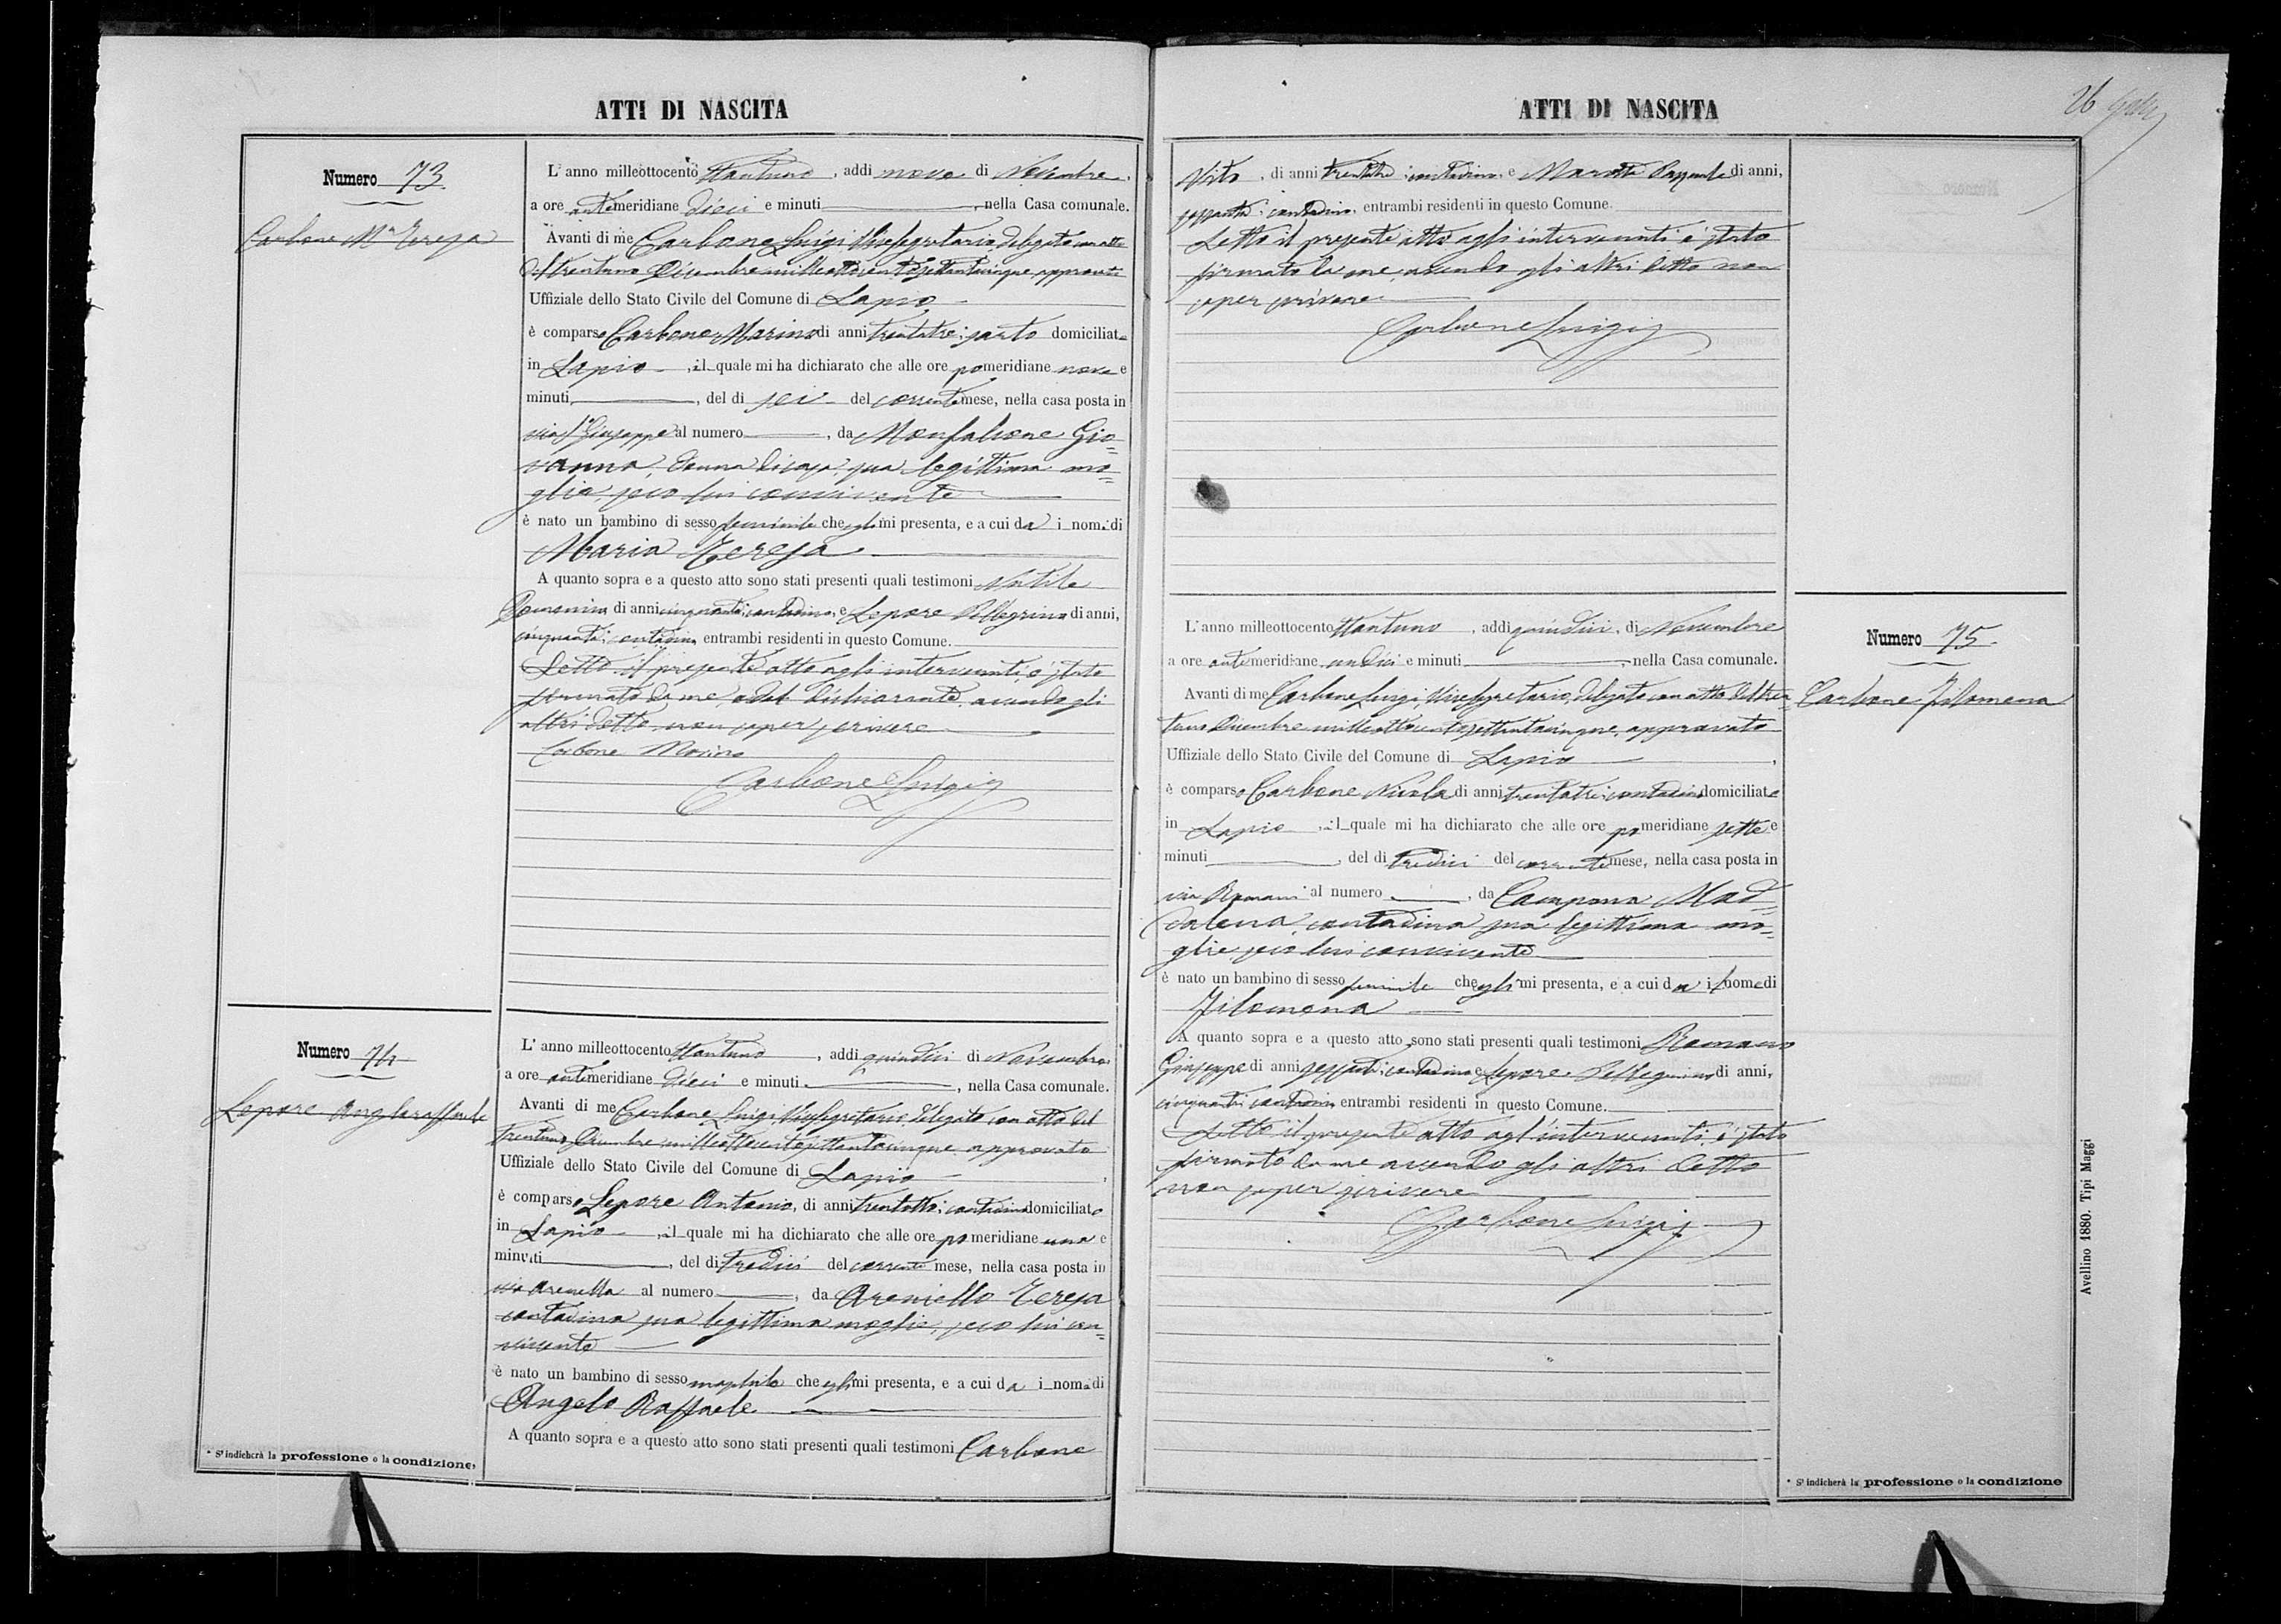 ATTI DI NASCITA
Numero 73.
Carbone Mª Teresa
L'anno milleottocento ottantuno, addi nove di Novembre,
a ore antimeridiane dieci e minuti, nella Casa comunale.
Avanti di me Carbone Luigi Vicesegretario delegato con atto
del trentuno Dicembre milleottocentosettantacinque, approvato
Uffiziale dello Stato Civile del Comune di Lapio
è comparso Carbone Marino di anni trentatre; sarto domiciliato
in Lapio, il quale mi ha dichiarato che alle ore pomeridiane nove e
minuti, del di sei del corrente mese, nella casa posta in
via S. Giuseppe al numero, da Monfalcone Gio=
vanna, donna di casa, sua legittima mo=
glie, seco lui convivente
è nato un bambino di sesso femminile che egli mi presenta, e a cui da i nomi di
Maria Teresa
A quanto sopra e a questo atto sono stati presenti quali testimoni Nutile
di anni cinquanta; contadino e Lepore Pellegrino di anni,
cinquanta; contadino entrambi residenti in questo Comune.
Letto il presente atto agli intervenuti, è stato
firmato da me, e dal dichiarante, avendo gli
altri detto non saper scrivere
Carbone Marino
Carbone Luigi
Numero 74
Lepore Angeloraffaele
L'anno milleottocento ottantuno, addi quindici di Novembre
a ore antimeridiane dieci e minuti, nella Casa comunale.
Avanti di me Carbone Luigi Vicesegretario, delegato con atto del
trentuno Dicembre milleottocentosettantacinque approvato
Uffiziale dello Stato Civile del Comune di Lapio
è comparso Lepore Antonio, di anni trentotto; contadino domiciliato
in Lapio, il quale mi ha dichiarato che alle ore pomeridiane una e
minuti, del di tredici del corrente mese, nella casa posta in
via Arenella al numero, da Areniello Teresa
contadina sua legittima moglie, seco lui con=
vivente
è nato un bambino di sesso maschile che egli mi presenta, e a cui da i nomi di
Angelo Raffaele
A quanto sopra e a questo atto sono stati presenti quali testimoni Carbone
* Si indicherà la professione o la condizione,
ATTI DI NASCITA
26
Vito, di anni trentatre; contadino, e di anni,
sessanta; contadino, entrambi residenti in questo Comune.
Letto il presente atto agli intervenuti è stato
firmato da me, avendo gli altri detto non
saper scrivere
Carbone Luigi
L'anno milleottocento ottantuno, addi quindici, di Novembre
a ore antimeridiane undici e minuti, nella Casa comunale.
Avanti di me Carbone Luigi, Vicesegretario, delegato con atto del tren=
tuno Dicembre milleottocentosettantacinque, approvato
Uffiziale dello Stato Civile del Comune di Lapio
è comparso Carbone Nicola di anni trentatre; contadino domiciliato
in Lapio, il quale mi ha dichiarato che alle ore pomeridiane sette e
minuti, del di tredici del corrente mese, nella casa posta in
via Romani al numero, da Campana Mad=
dalena, contadina sua legittima mo=
glie, seco lui convivente
è nato un bambino di sesso femminile che egli mi presenta, e a cui da il nome di
Filomena
A quanto sopra e a questo atto sono stati presenti quali testimoni Romano
Giuseppe di anni sessanta; contadino e Lepore Pellegrino di anni,
cinquanta; contadino entrambi residenti in questo Comune.
Letto il presente atto agl'intervenuti, è stato
firmato da me avendo gli altri detto
non saper scrivere
Carbone Luigi
Numero 75.
Carbone Filomena
Avellino 1880. Tipi Maggi
* Si indicherà la professione o la condizione